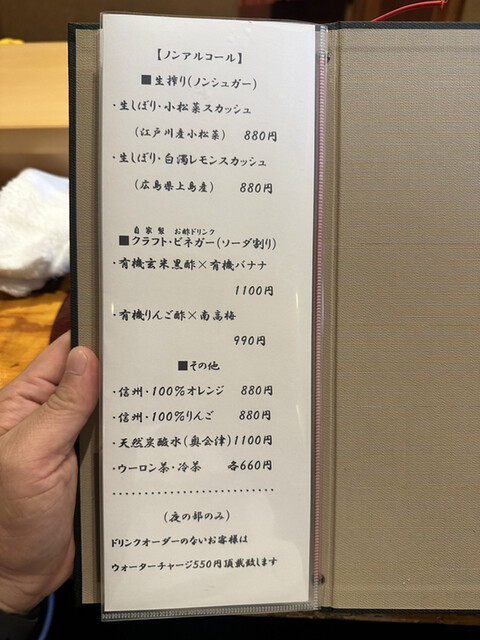 【ノンアルコール】
■生搾り(ノンシュガー)
・生しぼり・小松菜スカッシュ
(江戸川産小松菜) 880円
・生しぼり・白濁レモンスカッシュ
(広島県上島産) 880円
自家製 お酢ドリンク
■クラフト・ビネガー(ソーダ割り)
・有機玄米黒酢×有機バナナ
1100円
・有機りんご酢×南高梅
990円
■その他
・信州・100%オレンジ 880円
・信州・100%りんご 880円
・天然炭酸水(奥会津)1100円
・ウーロン茶・冷茶 各660円
(夜の部のみ)
ドリンクオーダーのないお客様は
ウォーターチャージ550円頂戴致します